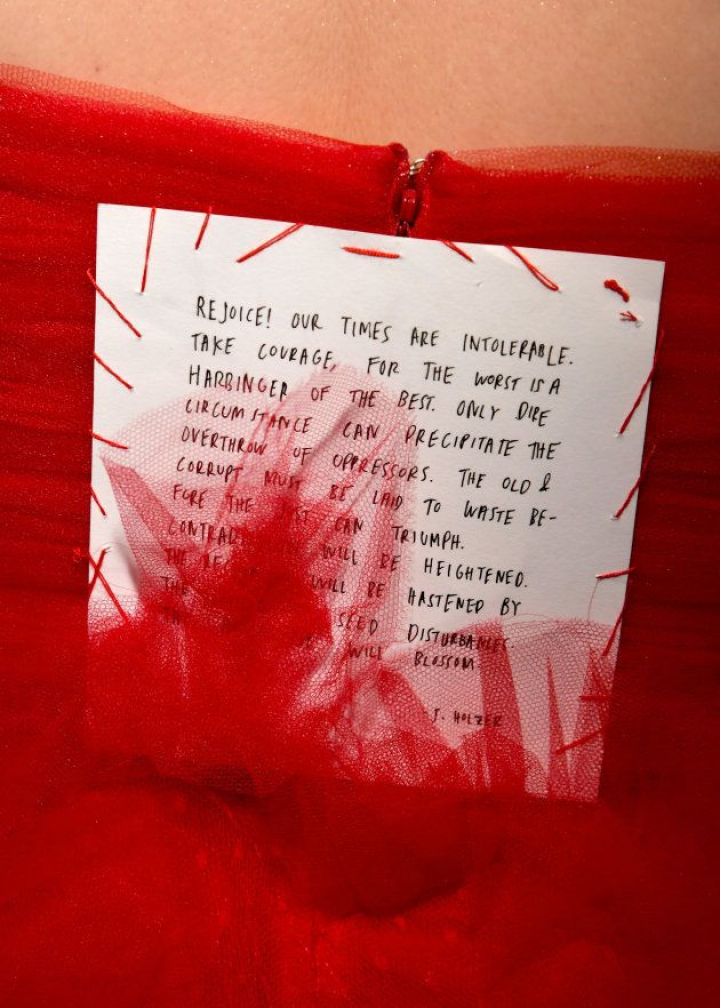 REJOICE! OUR TIMES ARE INTOLERABLE.
TAKE COURAGE, FOR THE WORST IS A
HARBINGER OF THE BEST. ONLY DIRE
CIRCUMSTANCE CAN PRECIPITATE THE
OVERTHROW OF OPPRESSORS. THE OLD &
CORRUPT MUST BE LAID TO WASTE BE-
FORE THE CAN TRIUMPH.
WILL BE HEIGHTENED.
THE WILL BE HASTENED BY
SEED DISTURBANCES.
WILL BLOSSOM.
J. HOLZER